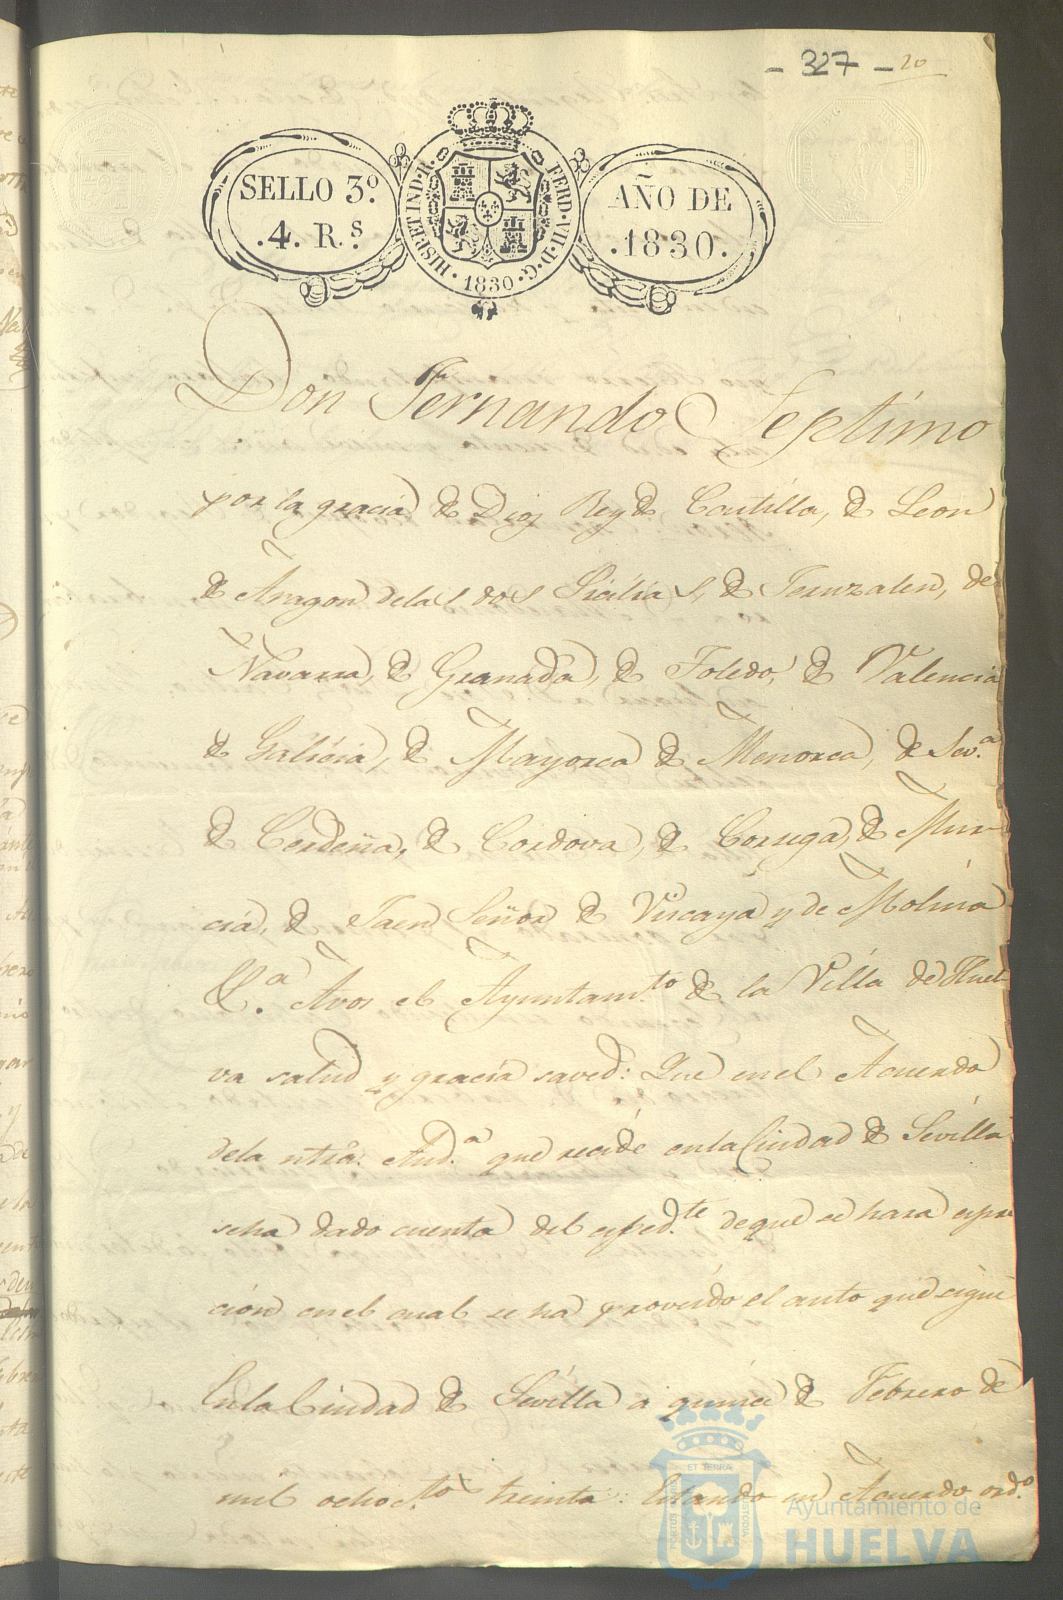 - 327 - 20
SELLO 3º.
.4. R.s
HISP. ET IND. R. FERD. VII. D. G. 1830
AÑO DE
.1830.
Don Fernando Septimo
por la gracia de Dios Rey de Castilla, de Leon
de Aragon delas dos Sicilias, de Jeruzalen, de
Navarra, de Granada, de Toledo, de Valencia
de Galicia, de Mayorca de Menorca, de Sev.a
de Cerdeña, de Cordova, de Corsega, de Mur
cia, de Jaen Señor de Viscaya y de Molina
&.a Avos el Ayuntam.to de la Villa de Huel
va salud y gracia saved: Que en el Acuerdo
dela ntra. Aud.a que recide enla Ciudad de Sevilla
seha dado cuenta del esped.te deque se hara espre
ción en el cual se ha proveido el auto que sigue
Enla Ciudad de Sevilla a quince de Febrero de
mil ochoc.tos treinta: Estando en Acuerdo ord.o
ET TERRÆ
PORTUS MARIS
CUSTODIA
Ayuntamiento de
HUELVA